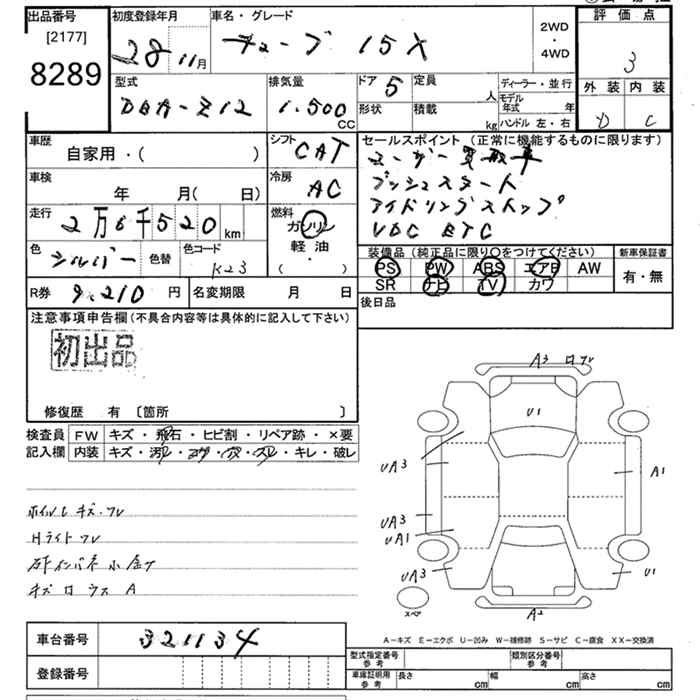 出品番号
[2177]
8289
初度登録年月
28 11月
車名・グレード
キューブ 15X
2WD
・
4WD
評価点
3
外装 内装
D C
型式
DBA-Z12
排気量
1.500
CC
ドア 5
定員
人
形状
積載
kg
ディーラー・並行
モデル
年式 年
ハンドル 左・右
車歴
自家用・( )
シフト
CAT
車検
年 月(日)
冷房
AC
走行
2万6千520 km
燃料
ガソリン
軽油
( )
色
シルバー
色替
色コード
K23
R券 9.210 円
名変期限 月 日
セールスポイント (正常に機能するものに限ります)
ユーザー買取車
プッシュスタート
アイドリングストップ
VDC ETC
装備品(純正品に限り○をつけてください)
PS PW ABS エアB AW
SR ナビ TV カワ
新車保証書
有・無
後日品
注意事項申告欄(不具合内容等は具体的に記入して下さい)
初出品
修復歴 有 〔箇所 〕
検査員
記入欄
FW キズ・飛石・ヒビ割・リペア跡・×要
内装 キズ・汚レ・コゲ・穴・スレ・キレ・破レ
ホイルL キズ.フレ
Hライト フレ
キズ ロ ウス A
A3
U1
UA3
A1
UA3
UA1
UA3
U1
スペア
A2
A-キズ E-エクボ U-凹み W-補修跡 S-サビ C-腐食 XX-交換済
車台番号 321134
登録番号
型式指定番号
参考
類別区分番号
参考
車庫証明用
参考
長さ cm
幅 cm
高さ cm